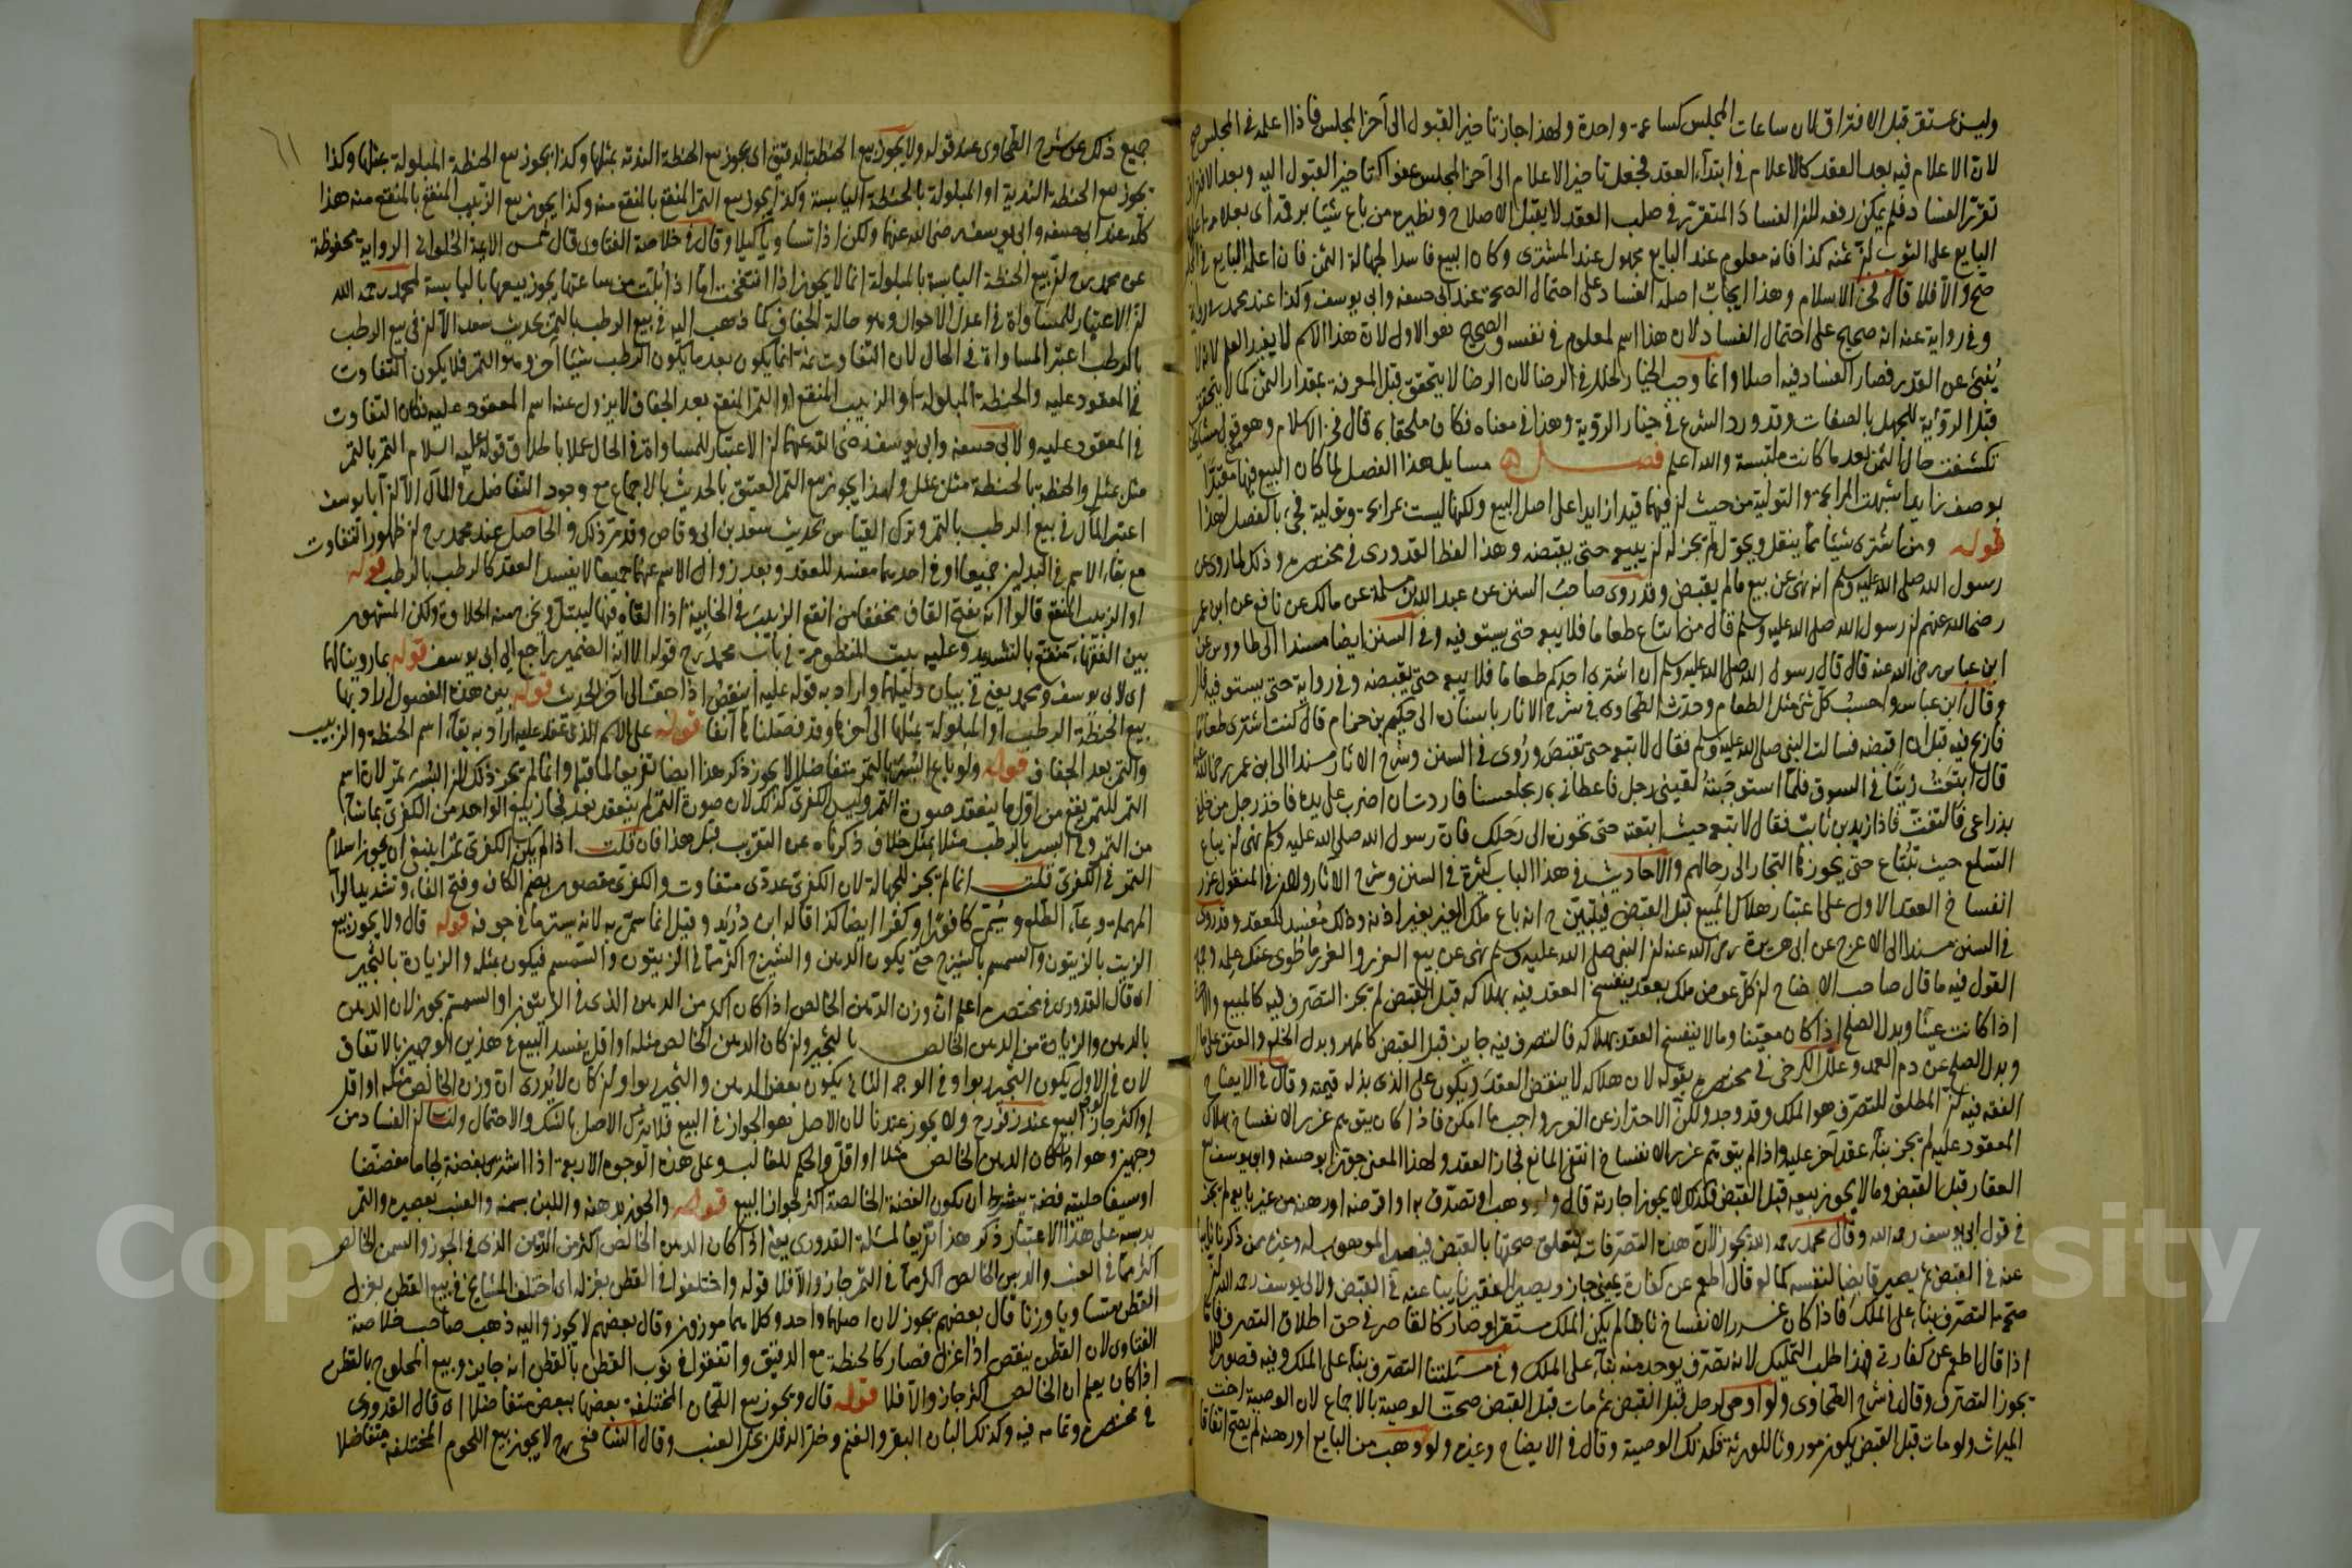 وليس بمستقر قبل الافتراق لان ساعات المجلس كساعة واحدة ولهذا جاز تاخير القبول الى آخر المجلس فاذا اعلمه في المجلس صح
لان الاعلام فيه بعد العقد كالاعلام في ابتداء العقد فجعل تاخير الاعلام الى آخر المجلس عفوا كتاخير القبول اليه وبعد الافتراق
تقرر الفساد فلم يمكن رفعه للفساد المتقرر في صلب العقد لا يقبل الاصلاح ونظيره من باع شيئا برقمه اى بعلامة
البايع على الثوب ان ثمنه كذا فانه معلوم عند البايع مجهول عند المشترى وكان البيع فاسدا لجهالة الثمن فان اعلمه البايع في
صح والا فلا قال فخر الاسلام وهذا ايجاب اصله الفساد على احتمال الصحة عند ابى حنيفه وابى يوسف وكذا عند محمد
وفي رواية عنه انه صحيح على احتمال الفساد لان هذا اسم لمعلوم في نفسه والصحيح هو الاول لان هذا الاسم لا يفيد العلم
ينبئ عن القدر فصار الفساد فيه اصلا وانما وجب الخيار لخلل في الرضا لان الرضا لا يتحقق قبل المعرفة بمقدار الثمن كما لا يتحقق
قبل الرؤية للجهل بالصفات وقد ورد الشرع في خيار الرؤية وهذا في معناه فكان ملحقا به قال فخر الاسلام وهو قول مشايخنا
تكشفت حال الثمن بعد ما كانت ملتبسة والله اعلم فصل مسايل هذا الفصل لما كان البيع فيها مقيدا
بوصف زايد اشبهت المرابحة والتولية من حيث ان فيهما قيدا زايدا على اصل البيع ولكنها ليست بمرابحة وتولية فجئ بالفصل لهذا
قوله ومن اشترى شيئا مما ينقل ويحول لم يجز له ان يبيعه حتى يقبضه وهذا لفظ القدورى في مختصره وذلك لما روى عن
رسول الله صلى الله عليه وسلم انه نهى عن بيع مالم يقبض وقد روى صاحب السنن عن عبد الله بن مسلمة عن مالك عن نافع عن ابن عمر
رضى الله عنهم ان رسول الله صلى الله عليه وسلم قال من ابتاع طعاما فلا يبعه حتى يستوفيه وفي السنن ايضا مسندا الى طاووس عن
ابن عباس رضى الله عنه قال قال رسول الله صلى الله عليه وسلم ان اشترى احدكم طعاما فلا يبعه حتى يقبضه وفي رواية حتى يستوفيه قال
وقال ابن عباس واحسب كل شئ مثل الطعام وحدث الطحاوى في شرح الاثار باسناده الى حكيم بن حزام قال كنت اشترى طعاما
فاربح فيه قبل ان اقبضه فسالت النبى صلى الله عليه وسلم فقال لا تبعه حتى تقبضه وروى في السنن وشرح الاثار مسندا الى ابن عمر رضى الله
قال ابتعت زيتا في السوق فلما استوجبته لقينى رجل فاعطانى به ربحا حسنا فاردت ان اضرب على يده فاخذ رجل من خلفى
بذراعى فالتفت فاذا زيد بن ثابت فقال لا تبعه حيث ابتعته حتى تحوزه الى رحلك فان رسول الله صلى الله عليه وسلم نهى ان تباع
السلع حيث تبتاع حتى يحوزها التجار الى رحالهم والاحاديث في هذا الباب كثيرة في السنن وشرح الآثار ولان في المنقول غرر
انفساخ العقد الاول على اعتبار هلاك المبيع قبل القبض فيتبين ح انه باع ملك الغير بغير اذنه وذلك مفسد للعقد وقد روى
في السنن مسندا الى الاعرج عن ابى هريرة رضى الله عنه ان النبى صلى الله عليه وسلم نهى عن بيع الغرر والغرر ما طوى عنك علمه
القول فيه ما قال صاحب الايضاح ان كل عوض ملك بعقد ينفسخ العقد فيه بهلاكه قبل القبض لم يجز التصرف فيه كالمبيع والاجرة
اذا كانت عينا وبدل الصلح اذا كان معينا وما لا ينفسخ العقد بهلاكه فالتصرف فيه جايز قبل القبض كالمهر وبدل الخلع والعتق على مال
وبدل الصلح عن دم العمد وعلل الكرخى في مختصره بقوله لان هلاكه لا ينقض العقد ويكون على الذى بذله قيمته وقال في الايضاح
الفقه فيه ان المطلق للتصرف هو الملك وقد وجد ولكن الاحتراز عن الغرر واجب ما امكن فاذا كان يتوهم غرر الانفساخ بهلاك
المعقود عليه لم يجز بناء عقد آخر عليه واذا لم يتوهم غرر الانفساخ انتفى المانع فجاز العقد ولهذا المعنى جوز ابو حنيفه وابو يوسف بيع
العقار قبل القبض وما لا يجوز بيعه قبل القبض فكذلك لا يجوز اجارته قال ولو وهب او تصدق به او اقرضه او رهنه من غير بايعه لم يجز
في قول ابى يوسف رحمه الله وقال محمد رحمه الله يجوز لان هذه التصرفات تتعلق صحتها بالقبض فيصير الموهوب له وغيره ممن ذكرنا نايبا
عنه في القبض ثم يصير قابضا لنفسه كما لو قال اطعم عن كفارة يمينى جاز ويصير الفقير نايبا عنه في القبض ولابى يوسف رحمه الله ان
صحة التصرف بناء على الملك فاذا كان غرر الانفساخ ثابتا لم يكن الملك مستقرا وصار كالقاصر في حق اطلاق التصرف
اذا قال اطعم عن كفارتى فهذا طلب التمليك لا تصرف يوجد منه بناء على الملك وفي مسئلتنا التصرف بناء على الملك وفيه قصور فلا
يجوز التصرف وقال في شرح الطحاوى ولو اوصى لرجل قبل القبض ثم مات قبل القبض صحت الوصية بالاجماع لان الوصية اخت
الميراث ولو مات قبل القبض يكون موروثا للورثة فكذلك الوصية وقال في الايضاح وغيره ولو وهب من البايع او رهنه لم يصح اتفاقا
جميع ذلك عن شرح الطحاوى عند قوله ولا يجوز بيع الحنطة بالدقيق اى يجوز بيع الحنطة الندية بمثلها وكذا يجوز بيع الحنطة المبلولة بمثلها وكذا
يجوز بيع الحنطة الندية او المبلولة بالحنطة اليابسة وكذا يجوز بيع التمر المنقع بالمنقع منه وكذا يجوز بيع الزبيب المنقع بالمنقع منه هذا
كله عند ابى حنيفه وابى يوسف رضى الله عنهما ولكن اذا تساويا كيلا وقال في خلاصة الفتاوى قال شمس الايمة الحلوانى الرواية محفوظة
عن محمد رح ان بيع الحنطة اليابسة بالمبلولة انما لا يجوز اذا انتفخت اما اذا بلت من ساعتها يجوز بيعها باليابسة لمحمد رحمه الله
ان الاعتبار للمساواة في اعدل الاحوال وهو حالة الجفاف كما ذهب اليه في بيع الرطب بالتمر بحديث سعد الا ان في بيع الرطب
بالرطب اعتبر المساواة في الحال لان التفاوت ثمة انما يكون بعد ما يكون الرطب شيئا آخر وهو التمر فلا يكون التفاوت
في المعقود عليه والحنطة المبلولة او الزبيب المنقع او التمر المنقع بعد الجفاف لا يزول عنه اسم المعقود عليه فكان التفاوت
في المعقود عليه ولابى حنيفه وابى يوسف رضى الله عنهما ان الاعتبار للمساواة في الحال عملا باطلاق قوله عليه السلام التمر بالتمر
مثل بمثل والحنطة بالحنطة مثل بمثل ولهذا يجوز بيع التمر العتيق بالحديث بالاجماع مع وجود التفاضل في المآل الا ان ابا يوسف
اعتبر المآل في بيع الرطب بالتمر وترك القياس بحديث سعد بن ابى وقاص وقد مر ذلك والحاصل عند محمد رح ان ظهور التفاوت
مع بقاء الاسم في البدلين جميعا او في احدهما مفسد للعقد وبعد زوال الاسم عنهما جميعا لا يفسد العقد كالرطب بالرطب قوله
او الزبيب المنقع قالوا انه بفتح القاف مخففا من انقع الزبيب في الخابية اذا القاه فيها ليبتل وتخرج منه الحلاوة ولكن المشهور
بين الفقهاء منقع بالتشديد وعليه بيت المنظومة في باب محمد رح قوله الا ان الضمير راجع الى ابى يوسف قوله بما روينا لهما
اى لابى يوسف ومحمد يعنى في بيان دليلهما واراد به قوله عليه اينقص اذا جف الى آخر الحديث قوله بين هذه الفصول اراد بها
بيع الحنطة الرطبة او المبلولة بمثلها الى آخرها وقد فصلناها آنفا قوله على الاسم الذى عقد عليه اراد به بقاء اسم الحنطة والزبيب
والتمر بعد الجفاف قوله ولو باع البسر بالتمر متفاضلا لا يجوز ذكر هذا ايضا تفريعا لما قبله وانما لم يجز ذلك لان البسر تمر لان اسم
التمر للتمر يقع من اول ما ينعقد صورة التمر وليس الكفرى كذلك لان صورة التمر لم ينعقد بعد فجاز بيع الواحد من الكفرى بما شاء
من التمر وفي البسر بالرطب مثلا بمثل خلاف ذكرناه عن التقريب قبل هذا فان قلت اذا لم يكن الكفرى تمرا ينبغى ان يجوز اسلام
التمر في الكفرى قلت انما لم يجز للجهالة لان الكفرى عددى متفاوت والكفرى مقصور بضم الكاف وفتح الفاء وتشديد الراء
المهملة وعاء الطلع ويسمى كافورا وكفرا ايضا كذا قاله ابن دريد وقيل انما سمى به لانه يستر ما في جوفه قوله قال ولا يجوز بيع
الزيت بالزيتون والسمسم بالشيرج حتى يكون الدهن والشيرج اكثر مما في الزيتون والسمسم فيكون بمثله والزيادة بالثجير
اى قال القدورى في مختصره اعلم ان وزن الدهن الخالص اذا كان اكثر من الدهن الذى في الزيتون او السمسم يجوز لان الدهن
بالدهن والزيادة من الدهن الخالص بالثجير وان كان الدهن الخالص مثله او اقل يفسد البيع في هذين الوجهين بالاتفاق
لان في الاول يكون الثجير ربوا وفي الوجه الثانى يكون بعض الدهن والثجير ربوا وان كان لا يدرى ان وزن الخالص مثله او اقل
او اكثر جاز البيع عند زفر رح ولا يجوز عندنا لان الاصل هو الجواز في البيع فلا يترك الاصل بالشك والاحتمال ولنا ان الفساد من
وجهين وهو اذا كان الدهن الخالص مثلا او اقل والحكم للغالب وعلى هذه الوجوه الاربعة اذا اشترى بفضة لجاما مفضضا
او سيفا حليته فضة يشترط ان يكون الفضة الخالصة اكثر لجواز البيع قوله والجوز بدهنه واللبن بسمنه والعنب بعصيره والتمر
بدبسه على هذا الاعتبار ذكر هذا تفريعا لمسئلة القدورى يعنى اذا كان الدهن الخالص اكثر من الدهن الذى في الجوز والسمن الخالص
اكثر مما في العنب والدبس الخالص اكثر مما في التمر جاز والا فلا قوله واختلفوا في القطن بغزله اى اختلف المشايخ في بيع القطن بغزل
القطن متساويا وزنا قال بعضهم يجوز لان اصلهما واحد وكلاهما موزون وقال بعضهم لا يجوز واليه ذهب صاحب خلاصة
الفتاوى لان القطن ينقص اذا غزل فصار كالحنطة مع الدقيق واتفقوا في ثوب القطن بالقطن انه جايز وبيع المحلوج بالقطن
اذا كان يعلم ان الخالص اكثر جاز والا فلا قوله قال ويجوز بيع اللحمان المختلفة بعضها ببعض متفاضلا اى قال القدورى
في مختصره وتمامه فيه وكذلك البان البقر والغنم وخل الدقل بخل العنب وقال الشافعى رح لا يجوز بيع اللحوم المختلفة متفاضلا